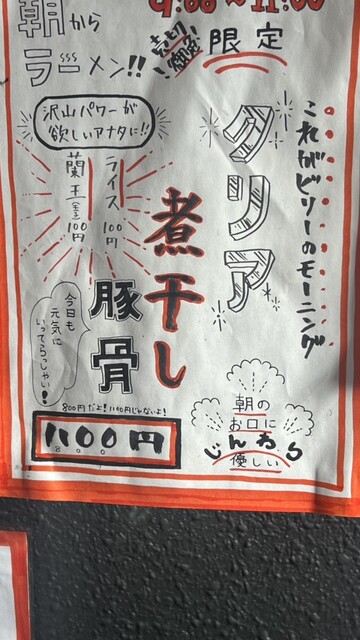 9:00〜11:00
朝から
ラーメン!!
限定
これがビリーのモーニング
クリア
煮干し
豚骨
沢山パワーが
欲しいアナタに!!
ライス 100円
蘭王(全) 100円
今日も
元気に
いってらっしゃい!
800円だよ!1100円じゃないよ!
1100円
800
朝の
お口に
じんわり
優しい